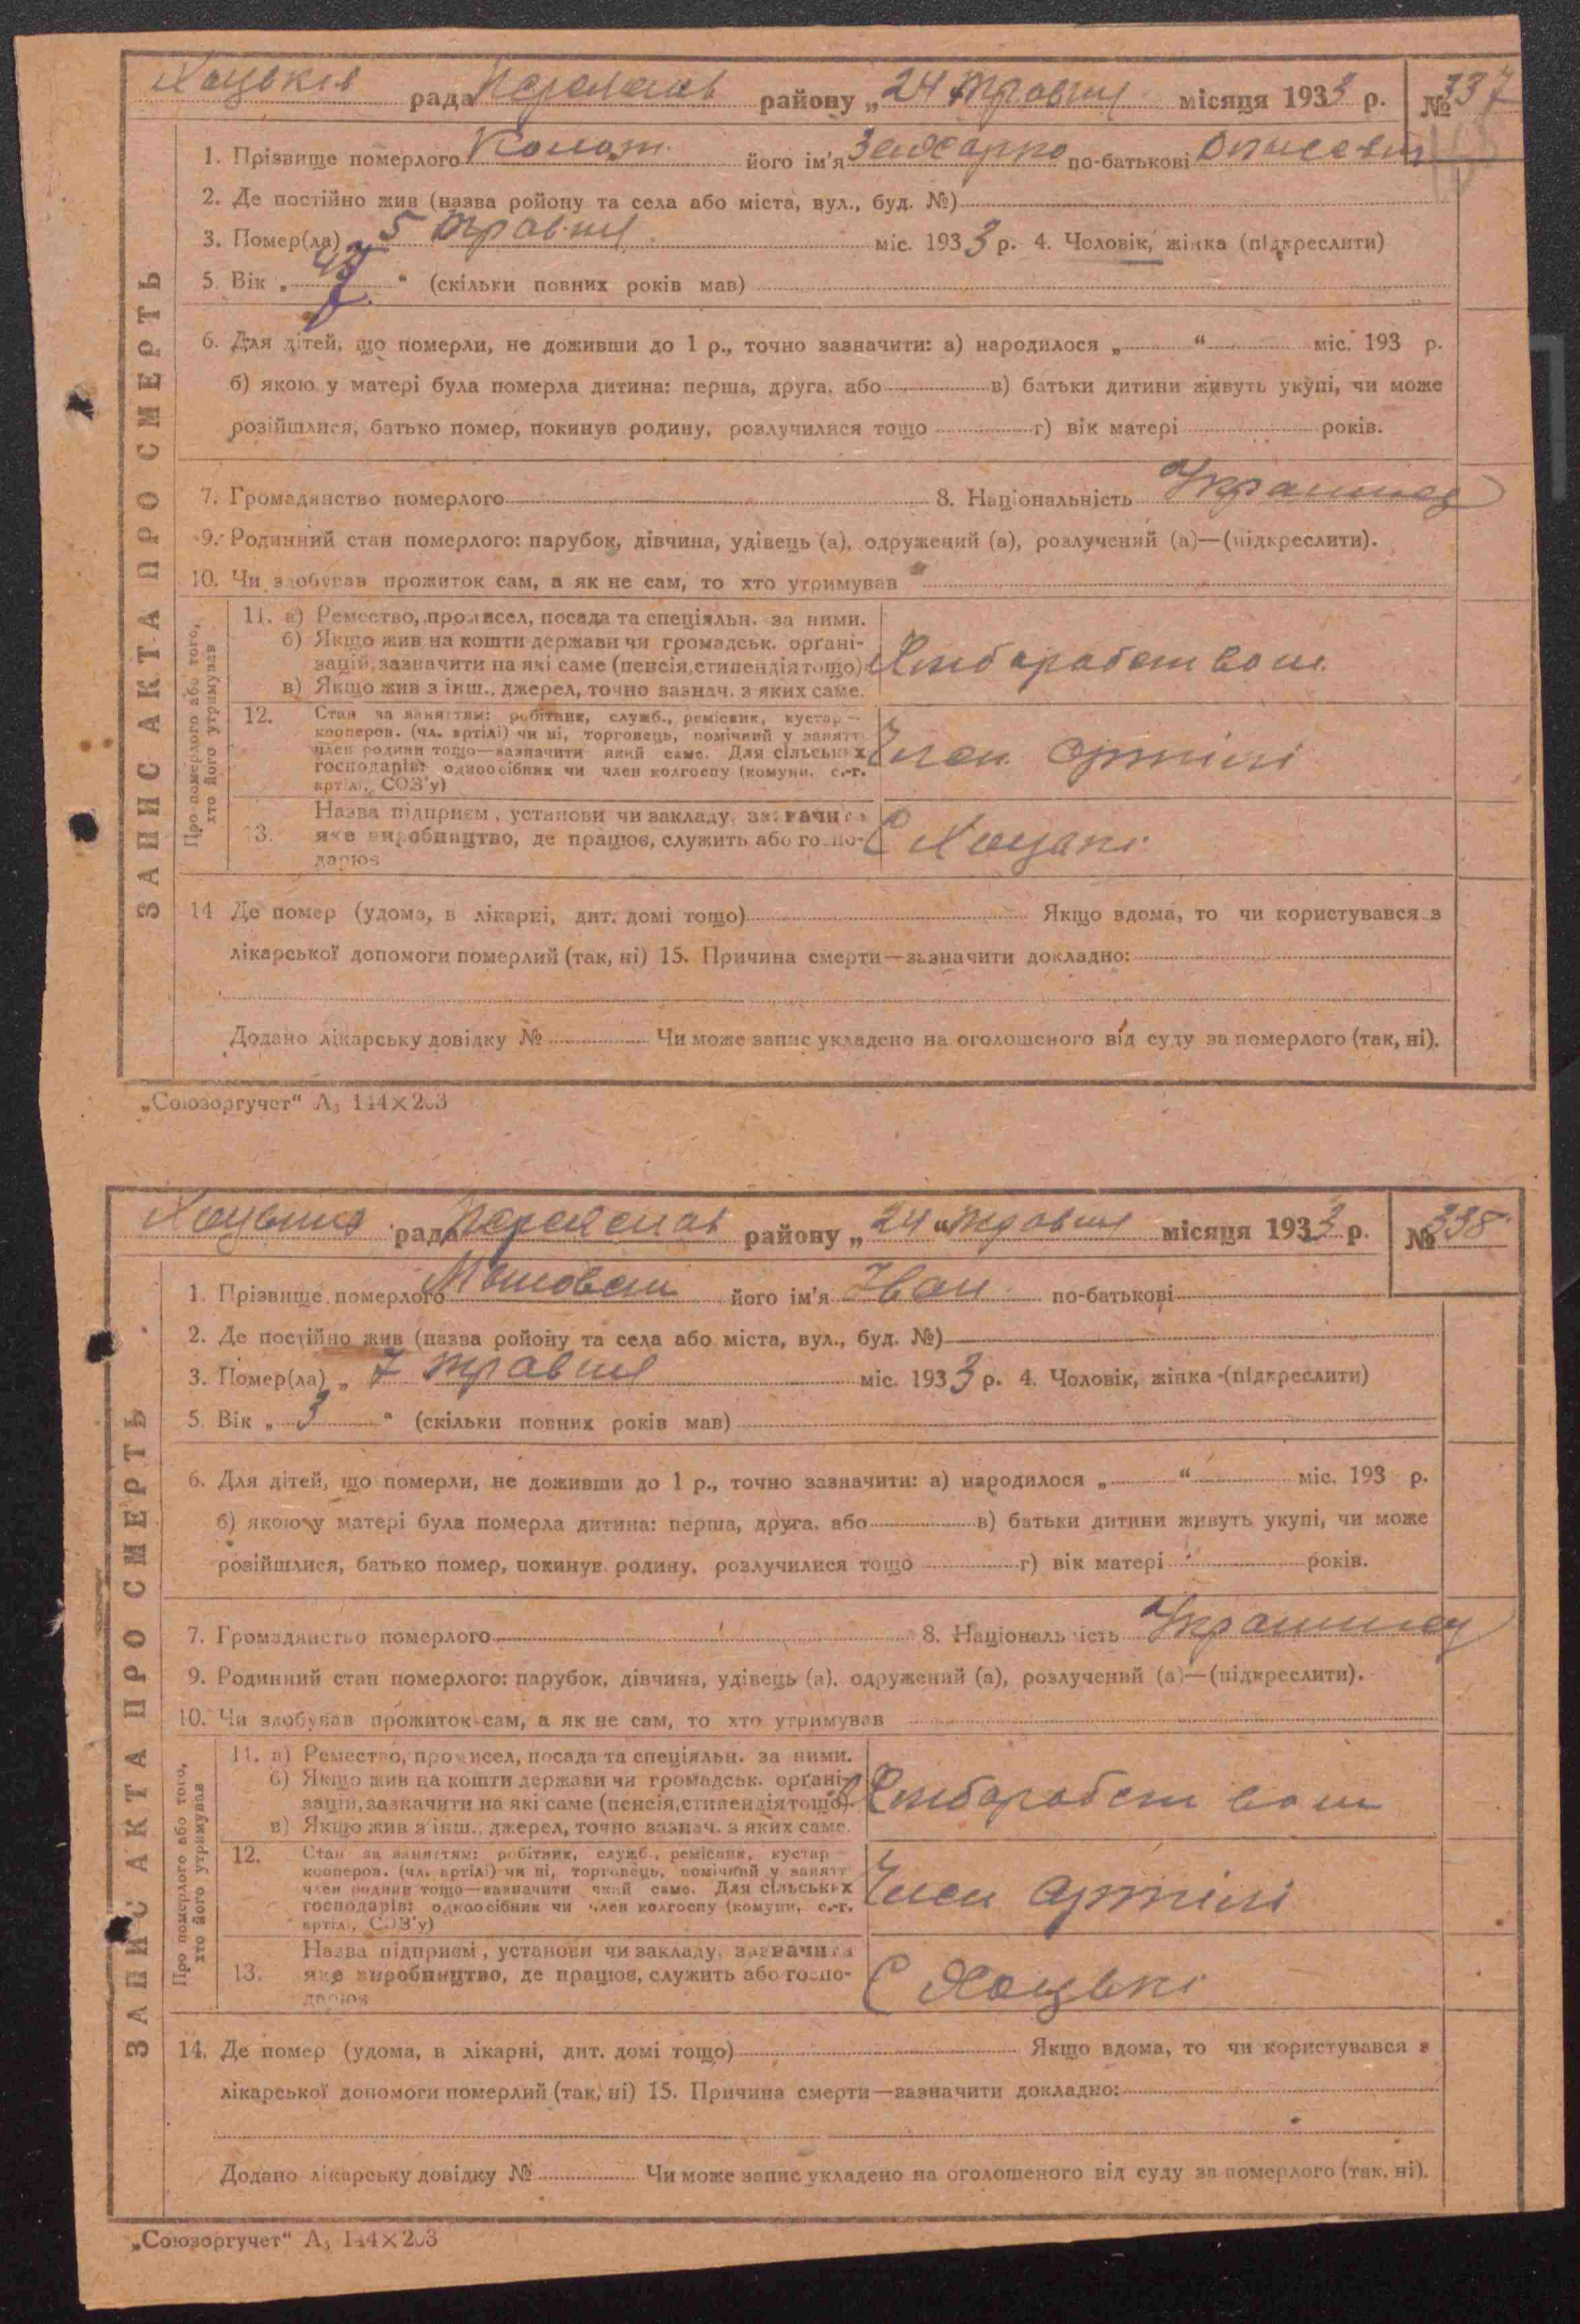 рада Переяслав району „ 24 травня місяця 1933 р. № 337
1. Прізвище померлого його ім'я Захарко по-батькові
2. Де постійно жив (назва ройону та села або міста, вул., буд. №)
3. Помер(ла) „ 5 травня міс. 1933 р. 4. Чоловік, жінка (підкреслити)
5. Вік „ “ (скільки повних років мав)
6. Для дітей, що померли, не доживши до 1 р., точно зазначити: а) народилося „ “ міс. 193 р.
б) якою у матері була померла дитина: перша, друга, або в) батьки дитини живуть укупі, чи може
розійшлися, батько помер, покинув родину, розлучилися тощо г) вік матері років.
7. Громадянство померлого 8. Національність Украинец
9. Родинний стан померлого: парубок, дівчина, удівець (а), одружений (а), розлучений (а)—(підкреслити).
10. Чи здобував прожиток сам, а як не сам, то хто утримував
ЗАПИС АКТА ПРО СМЕРТЬ
Про померлого або того,
хто його утримував
11. а) Ремество, промисел, посада та спеціяльн. за ними.
б) Якщо жив на кошти держави чи громадськ. органі-
зацій, зазначити на які саме (пенсія, стипендія тощо)
в) Якщо жив з інш., джерел, точно зазнач. з яких саме.
Хлiборобством
12. Стан за заняттям: робітник, служб., ремісник, кустар—
кооперов. (чл. артілі) чи ні, торговець, помічний у занятті
член родини тощо—зазначити який саме. Для сільських
господарів: одноосібник чи член колгоспу (комуни, с.-г.
артілі, СОЗ'у)
Член артілі
13. Назва підприєм, установи чи закладу, зазначити
яке виробництво, де працює, служить або госпо-
дарює
С Хоцьки
14 Де помер (удома, в лікарні, дит. домі тощо) Якщо вдома, то чи користувався з
лікарської допомоги померлий (так, ні) 15. Причина смерти—зазначити докладно:
Додано лікарську довідку № Чи може запис укладено на оголошеного від суду за померлого (так, ні).
„Союзоргучет“ А₅ 144×203
рада Переяслав району „ 24 “ травня місяця 1933 р. № 338
1. Прізвище померлого його ім'я Іван по-батькові
2. Де постійно жив (назва ройону та села або міста, вул., буд. №)
3. Помер(ла) „ 7 травня міс. 1933 р. 4. Чоловік, жінка (підкреслити)
5. Вік „ 3 “ (скільки повних років мав)
6. Для дітей, що померли, не доживши до 1 р., точно зазначити: а) народилося „ “ міс. 193 р.
б) якою у матері була померла дитина: перша, друга, або в) батьки дитини живуть укупі, чи може
розійшлися, батько помер, покинув родину, розлучилися тощо г) вік матері років.
7. Громадянство померлого 8. Національність Украинец
9. Родинний стан померлого: парубок, дівчина, удівець (а), одружений (а), розлучений (а)—(підкреслити).
10. Чи здобував прожиток сам, а як не сам, то хто утримував
ЗАПИС АКТА ПРО СМЕРТЬ
Про померлого або того,
хто його утримував
11. а) Ремество, промисел, посада та спеціяльн. за ними.
б) Якщо жив на кошти держави чи громадськ. органі-
зацій, зазначити на які саме (пенсія, стипендія тощо)
в) Якщо жив з інш., джерел, точно зазнач. з яких саме.
Хлiборобством
12. Стан за заняттям: робітник, служб., ремісник, кустар
кооперов. (чл. артілі) чи ні, торговець, помічний у занятті
член родини тощо—зазначити який саме. Для сільських
господарів: одноосібник чи член колгоспу (комуни, с.-г.
артілі, СОЗ'у)
Член артілі
13. Назва підприєм, установи чи закладу, зазначити
яке виробництво, де працює, служить або госпо-
дарює
С Хоцькі
14. Де помер (удома, в лікарні, дит. домі тощо) Якщо вдома, то чи користувався з
лікарської допомоги померлий (так, ні) 15. Причина смерти—зазначити докладно:
Додано лікарську довідку № Чи може запис укладено на оголошеного від суду за померлого (так, ні).
„Союзоргучет“ А₅ 144×203